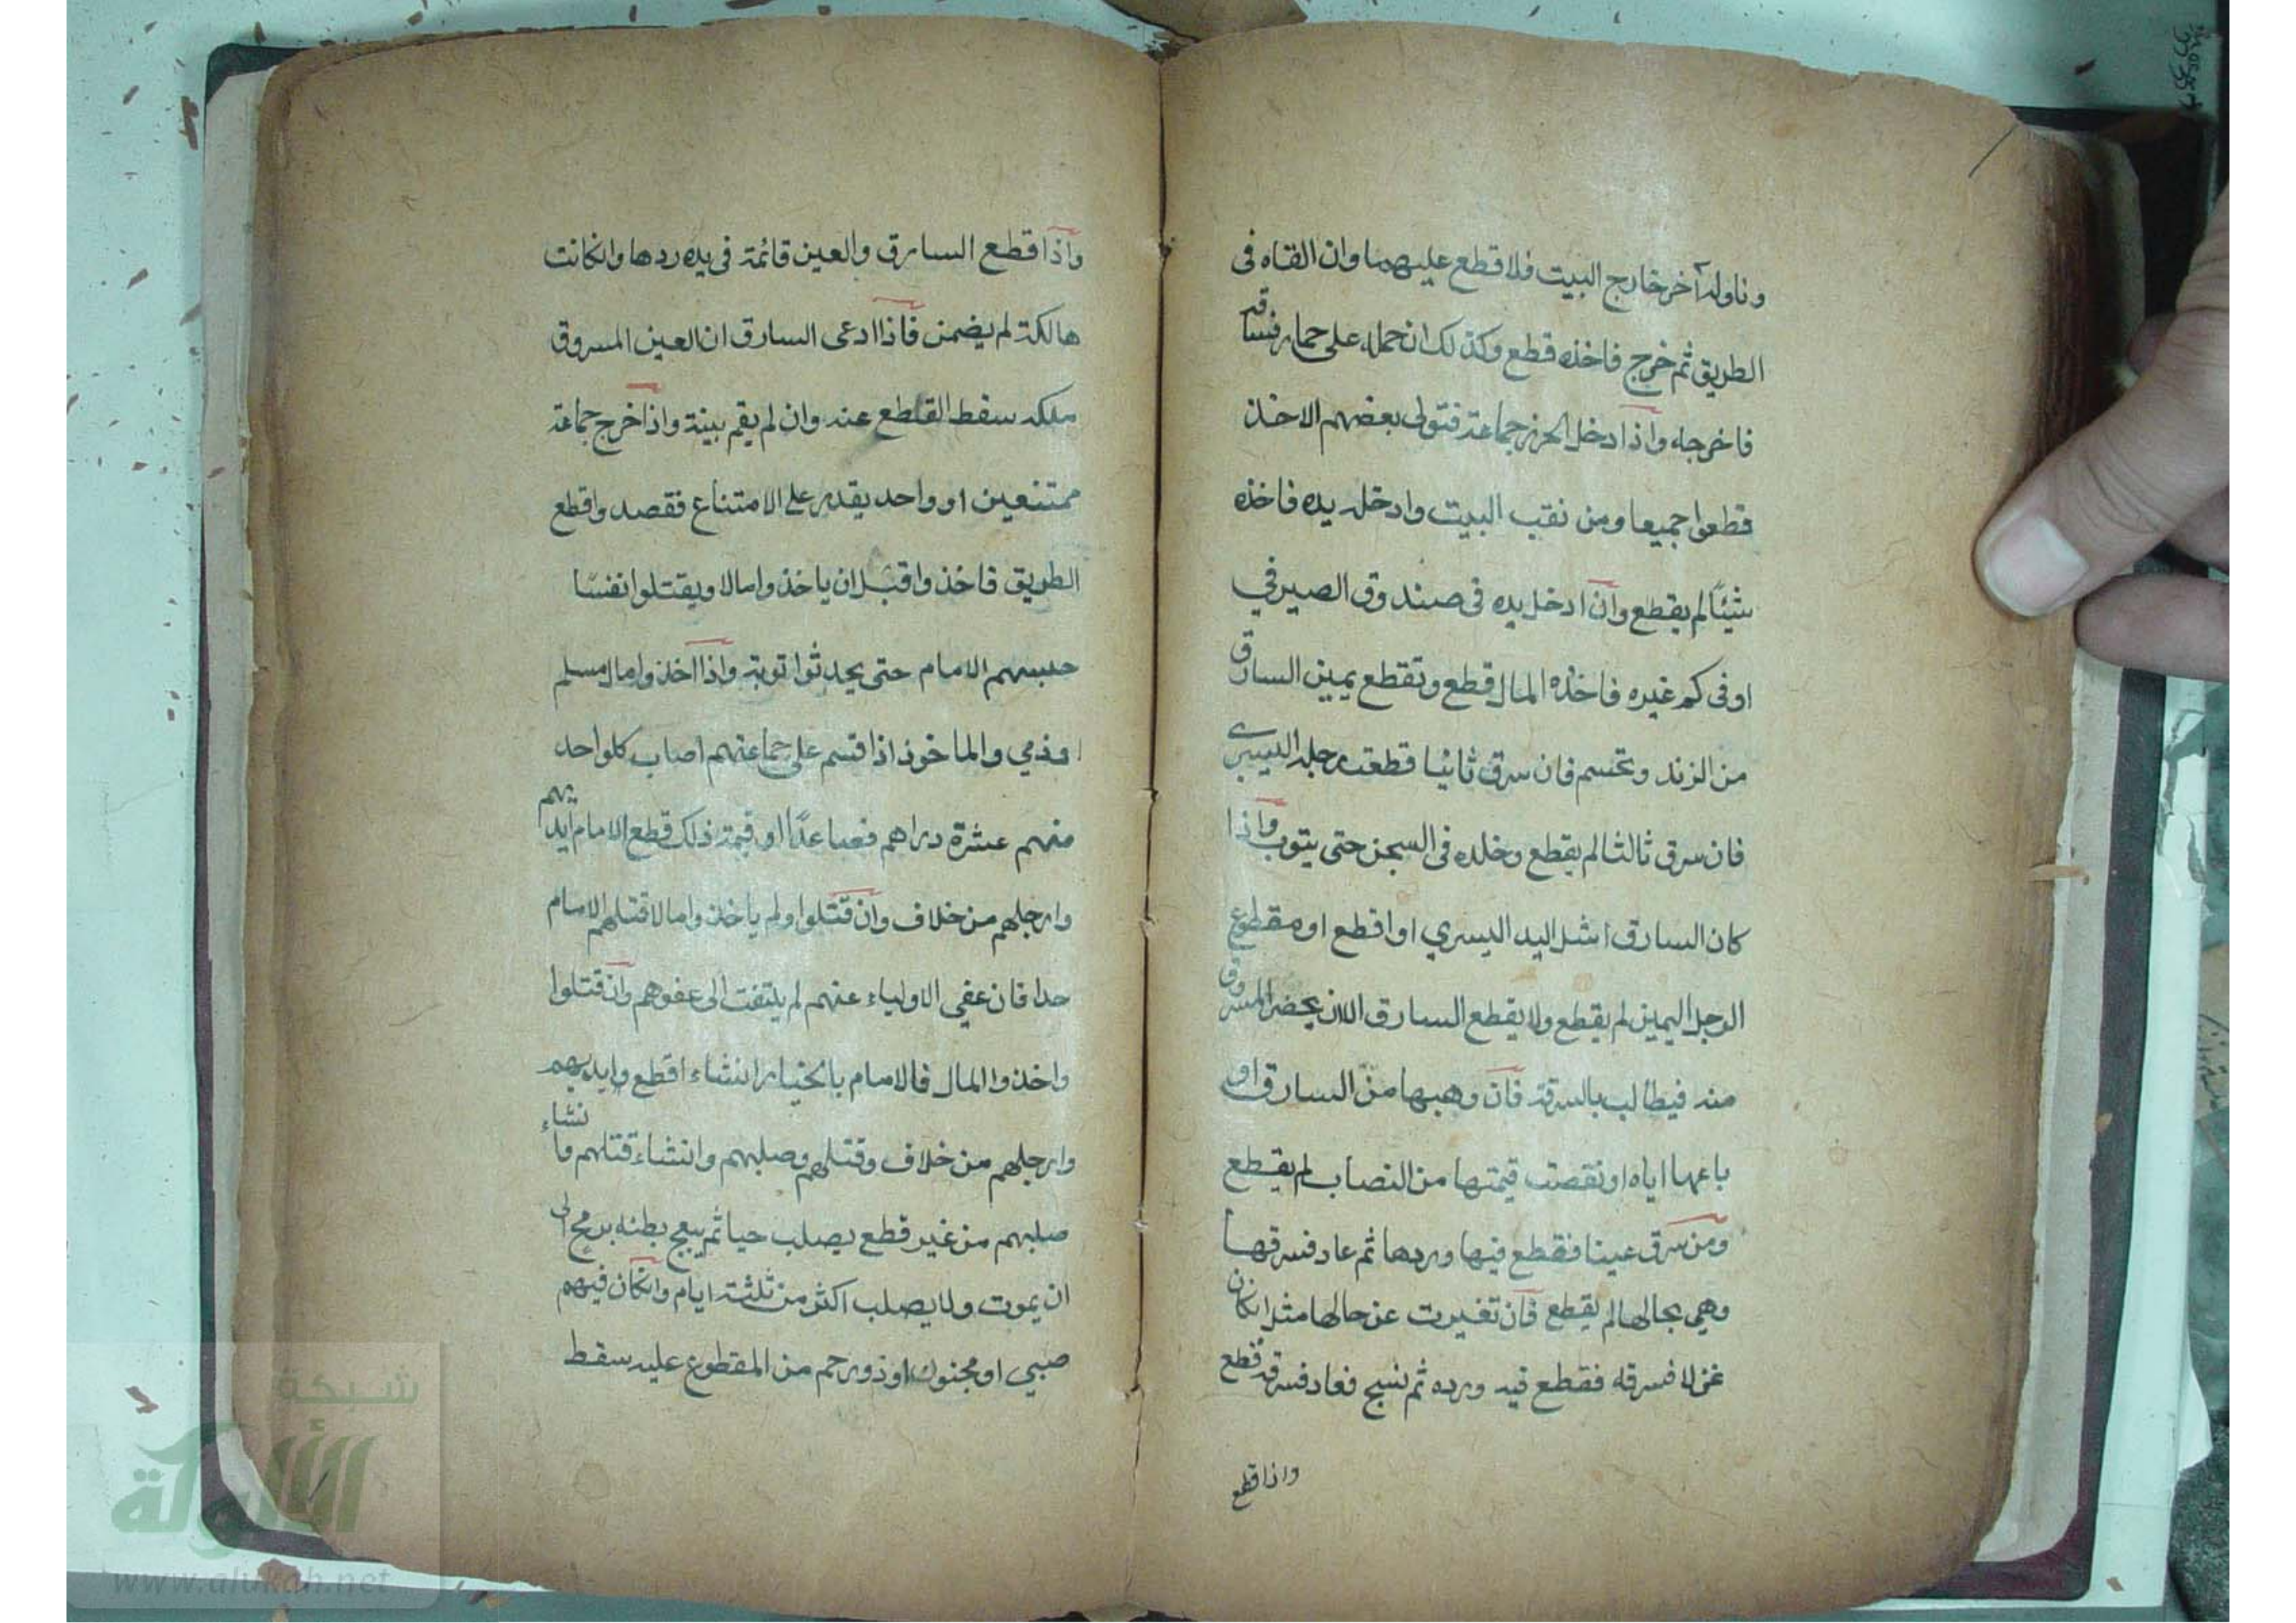 وناوله آخر خارج البيت فلا قطع عليهما وان القاه فى
الطريق ثم خرج فاخذه قطع وكذلك ان حمله على حمار فساقه
فاخرجه واذا دخل الحرز جماعة فتولى بعضهم الاخذ
قطعوا جميعا ومن نقب البيت وادخل يده فاخذه
شيئًا لم يقطع وان ادخل يده فى صندوق الصيرفي
او فى كم غيره فاخذه المال قطع وتقطع يمين السارق
من الزند وتحسم فان سرق ثانيا قطعت رجله اليسرى
فان سرق ثالثا لم يقطع وخلده فى السجن حتى يتوب واذا
كان السارق اشل اليد اليسري او اقطع او مقطوع
الرجل اليمين لم يقطع ولا يقطع السارق الا ان يحضر المسروق
منه فيطالب بالسرقة فان وهبها من السارق او
باعها اياه او نقصت قيمتها من النصاب لم يقطع
ومن سرق عينا فقطع فيها وردها ثم عاد فسرقها
وهي بحالها لم يقطع فان تغيرت عن حالها مثل انكان
غزلا فسرقه فقطع فيه ورده ثم نسج فعاد فسرقه قطع
واذا قطع
واذا قطع السارق والعين قائمة فى يده ردها وانكانت
هالكة لم يضمن فاذا ادعى السارق ان العين المسروق
ملكه سقط القطع عنه وان لم يقم بينة واذا خرج جماعة
ممتنعين او واحد يقدر على الامتناع فقصدوا قطع
الطريق فاخذوا قبل ان ياخذوا مالا ويقتلوا نفسًا
حبسهم الامام حتى يحدثوا توبة واذا اخذوا مال مسلم
او ذمي والماخوذ اذا قسم على جماعتهم اصاب كلواحد
منهم عشرة دراهم فصاعدًا او قيمة ذلك قطع الامام ايديهم
وارجلهم من خلاف وان قتلوا ولم ياخذوا مالا قتلهم الامام
حدا فان عفي الاولياء عنهم لم يلتفت الى عفوهم وان قتلوا
واخذوا المال فالامام بالخيار انشاء اقطع وايديهم
وارجلهم من خلاف وقتلهم وصلبهم وانشاء قتلهم وانشاء
صلبهم من غير قطع يصلب حيا ثم يبعج بطنه برمح الى
ان يموت ولا يصلب اكثر من ثلثة ايام وانكان فيهم
صبي او مجنون او ذو رحم من المقطوع عليه سقط
شبكة
الألوكة
www.alukah.net